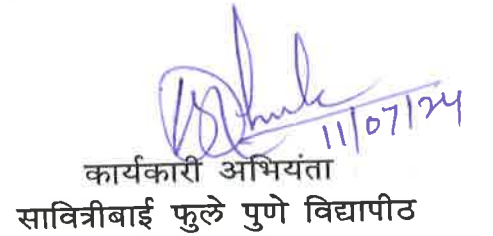 11/07/24
कार्यकारी अभियंता
सावित्रीबाई फुले पुणे विद्यापीठ